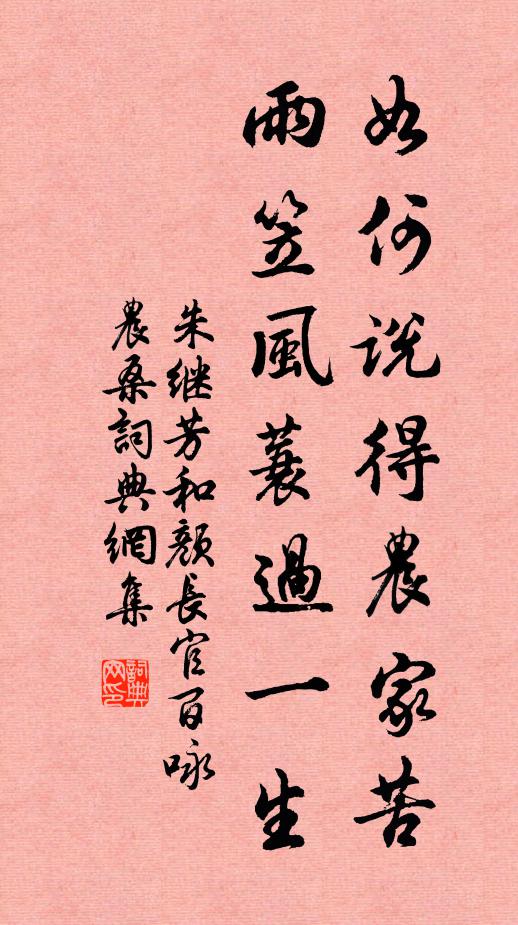 如何說得農家苦
雨笠風蓑過一生
朱继芳和顏長官百咏
農桑詞典網集
詞典网印